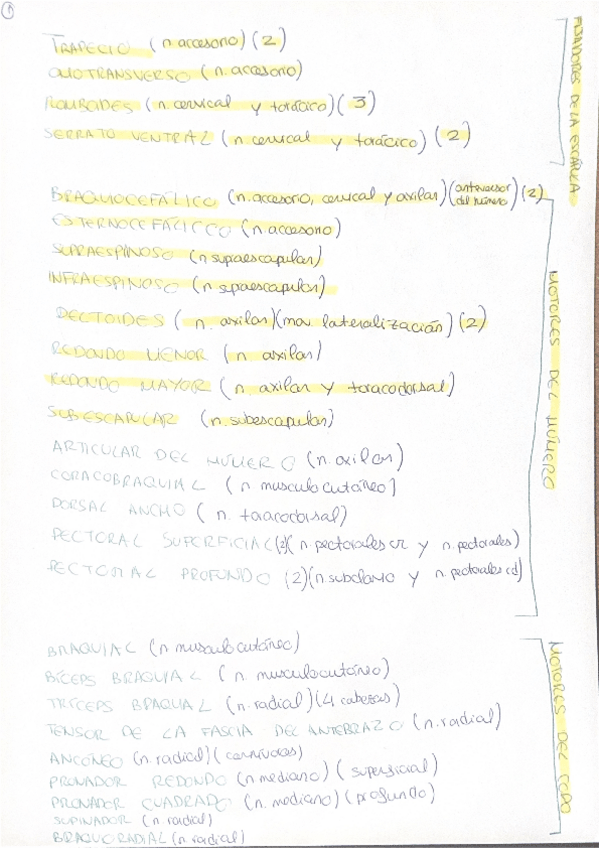 1
TRAPECIO (n accesorio) (2)
OMOTRANSVERSO (n. accesorio)
ROMBOIDES (n. cervical y torácico) (3)
SERRATO VENTRAL (n cervical y torácico) (2)
FIJADORES DE LA ESCÁPULA
BRAQUIOCEFÁLICO (n. accesorio, cervical y axilar) (anteversor del húmero) (2)
ESTERNOCEFÁLICO (n. accesorio)
SUPRAESPINOSO (n supraescapular)
INFRAESPINOSO (n supraescapular)
DECTOIDES (n. axilar) (mov. lateralización) (2)
REDONDO MENOR (n axilar)
REDONDO MAYOR (n axilar y toracodorsal)
SUBESCAPULAR (n. subescapular)
ARTICULAR DEL HÚMERO (n. axilar)
CORACOBRAQUIAL (n musculocutáneo)
DORSAL ANCHO (n. toracodorsal)
PECTORAL SUPERFICIAL (2) (n. pectorales cr y n. pectorales)
PECTORAL PROFUNDO (2) (n subclavio y n. pectorales cd)
MOTORES DEL HÚMERO
BRAQUIAL (n musculocutáneo)
BÍCEPS BRAQUIAL (n musculocutáneo)
TRÍCEPS BRAQUIAL (n. radial) (4 cabezas)
TENSOR DE LA FASCIA DEL ANTEBRAZO (n. radial)
ANCÓNEO (n. radial) (carnívoros)
PRONADOR REDONDO (n mediano) (superficial)
PRONADOR CUADRADO (n. mediano) (profundo)
SUPINADOR (n. radial)
BRAQUIORADIAL (n. radial)
MOTORES DEL CODO